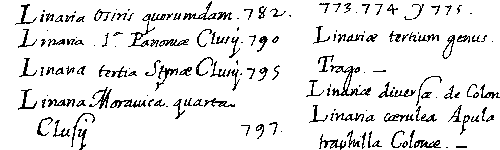 Linaria Osiris quorumdam. 782.
Linaria 1ª Panoniæ Clusij. 790
Linaria tertia Styriæ Clusij. 795
Linaria Moravica quarta
Clusij 797.
773. 774 y 775.
Linariæ tertium genus.
Trago. —
Linariæ diversæ de Colon
Linaria cærulea Apula
traphilla Colonæ. —